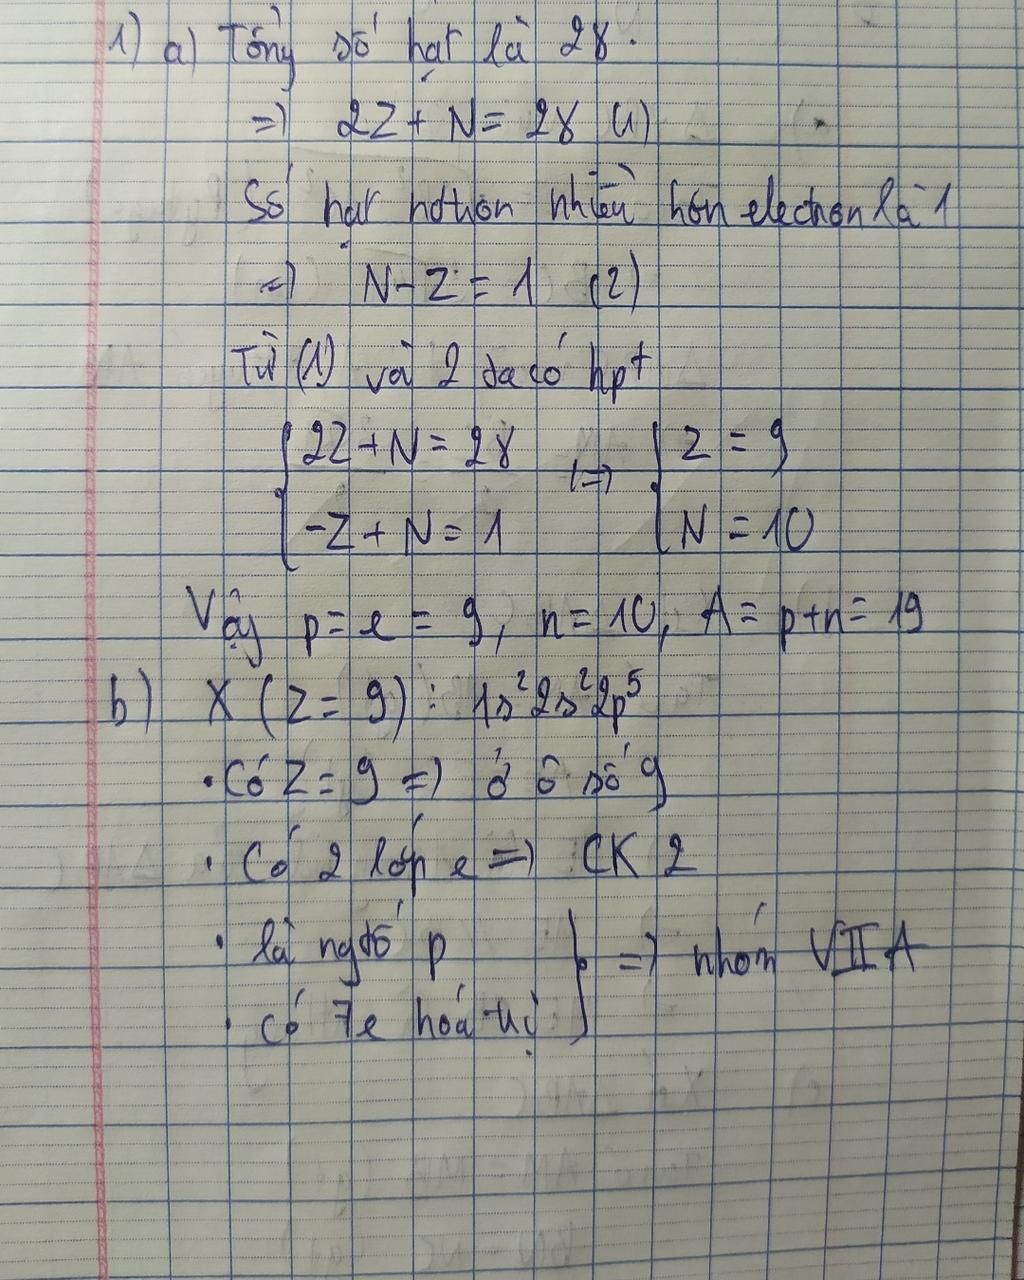 1) a) Tổng số hạt là 28.
=> 2Z + N = 28 (1)
Số hạt nơtron nhiều hơn electron là 1
=> N - Z = 1 (2)
Từ (1) và 2 ta có hpt
{ 2Z + N = 28 <=> { Z = 9
{ -Z + N = 1 { N = 10
Vậy p = e = 9, n = 10, A = p+n = 19
b) X (Z = 9) : 1s²2s²2p⁵
• Có Z = 9 => ở ô số 9
• Có 2 lớp e => CK 2
• là ngtố p } => nhóm VII A
• có 7e hoá trị